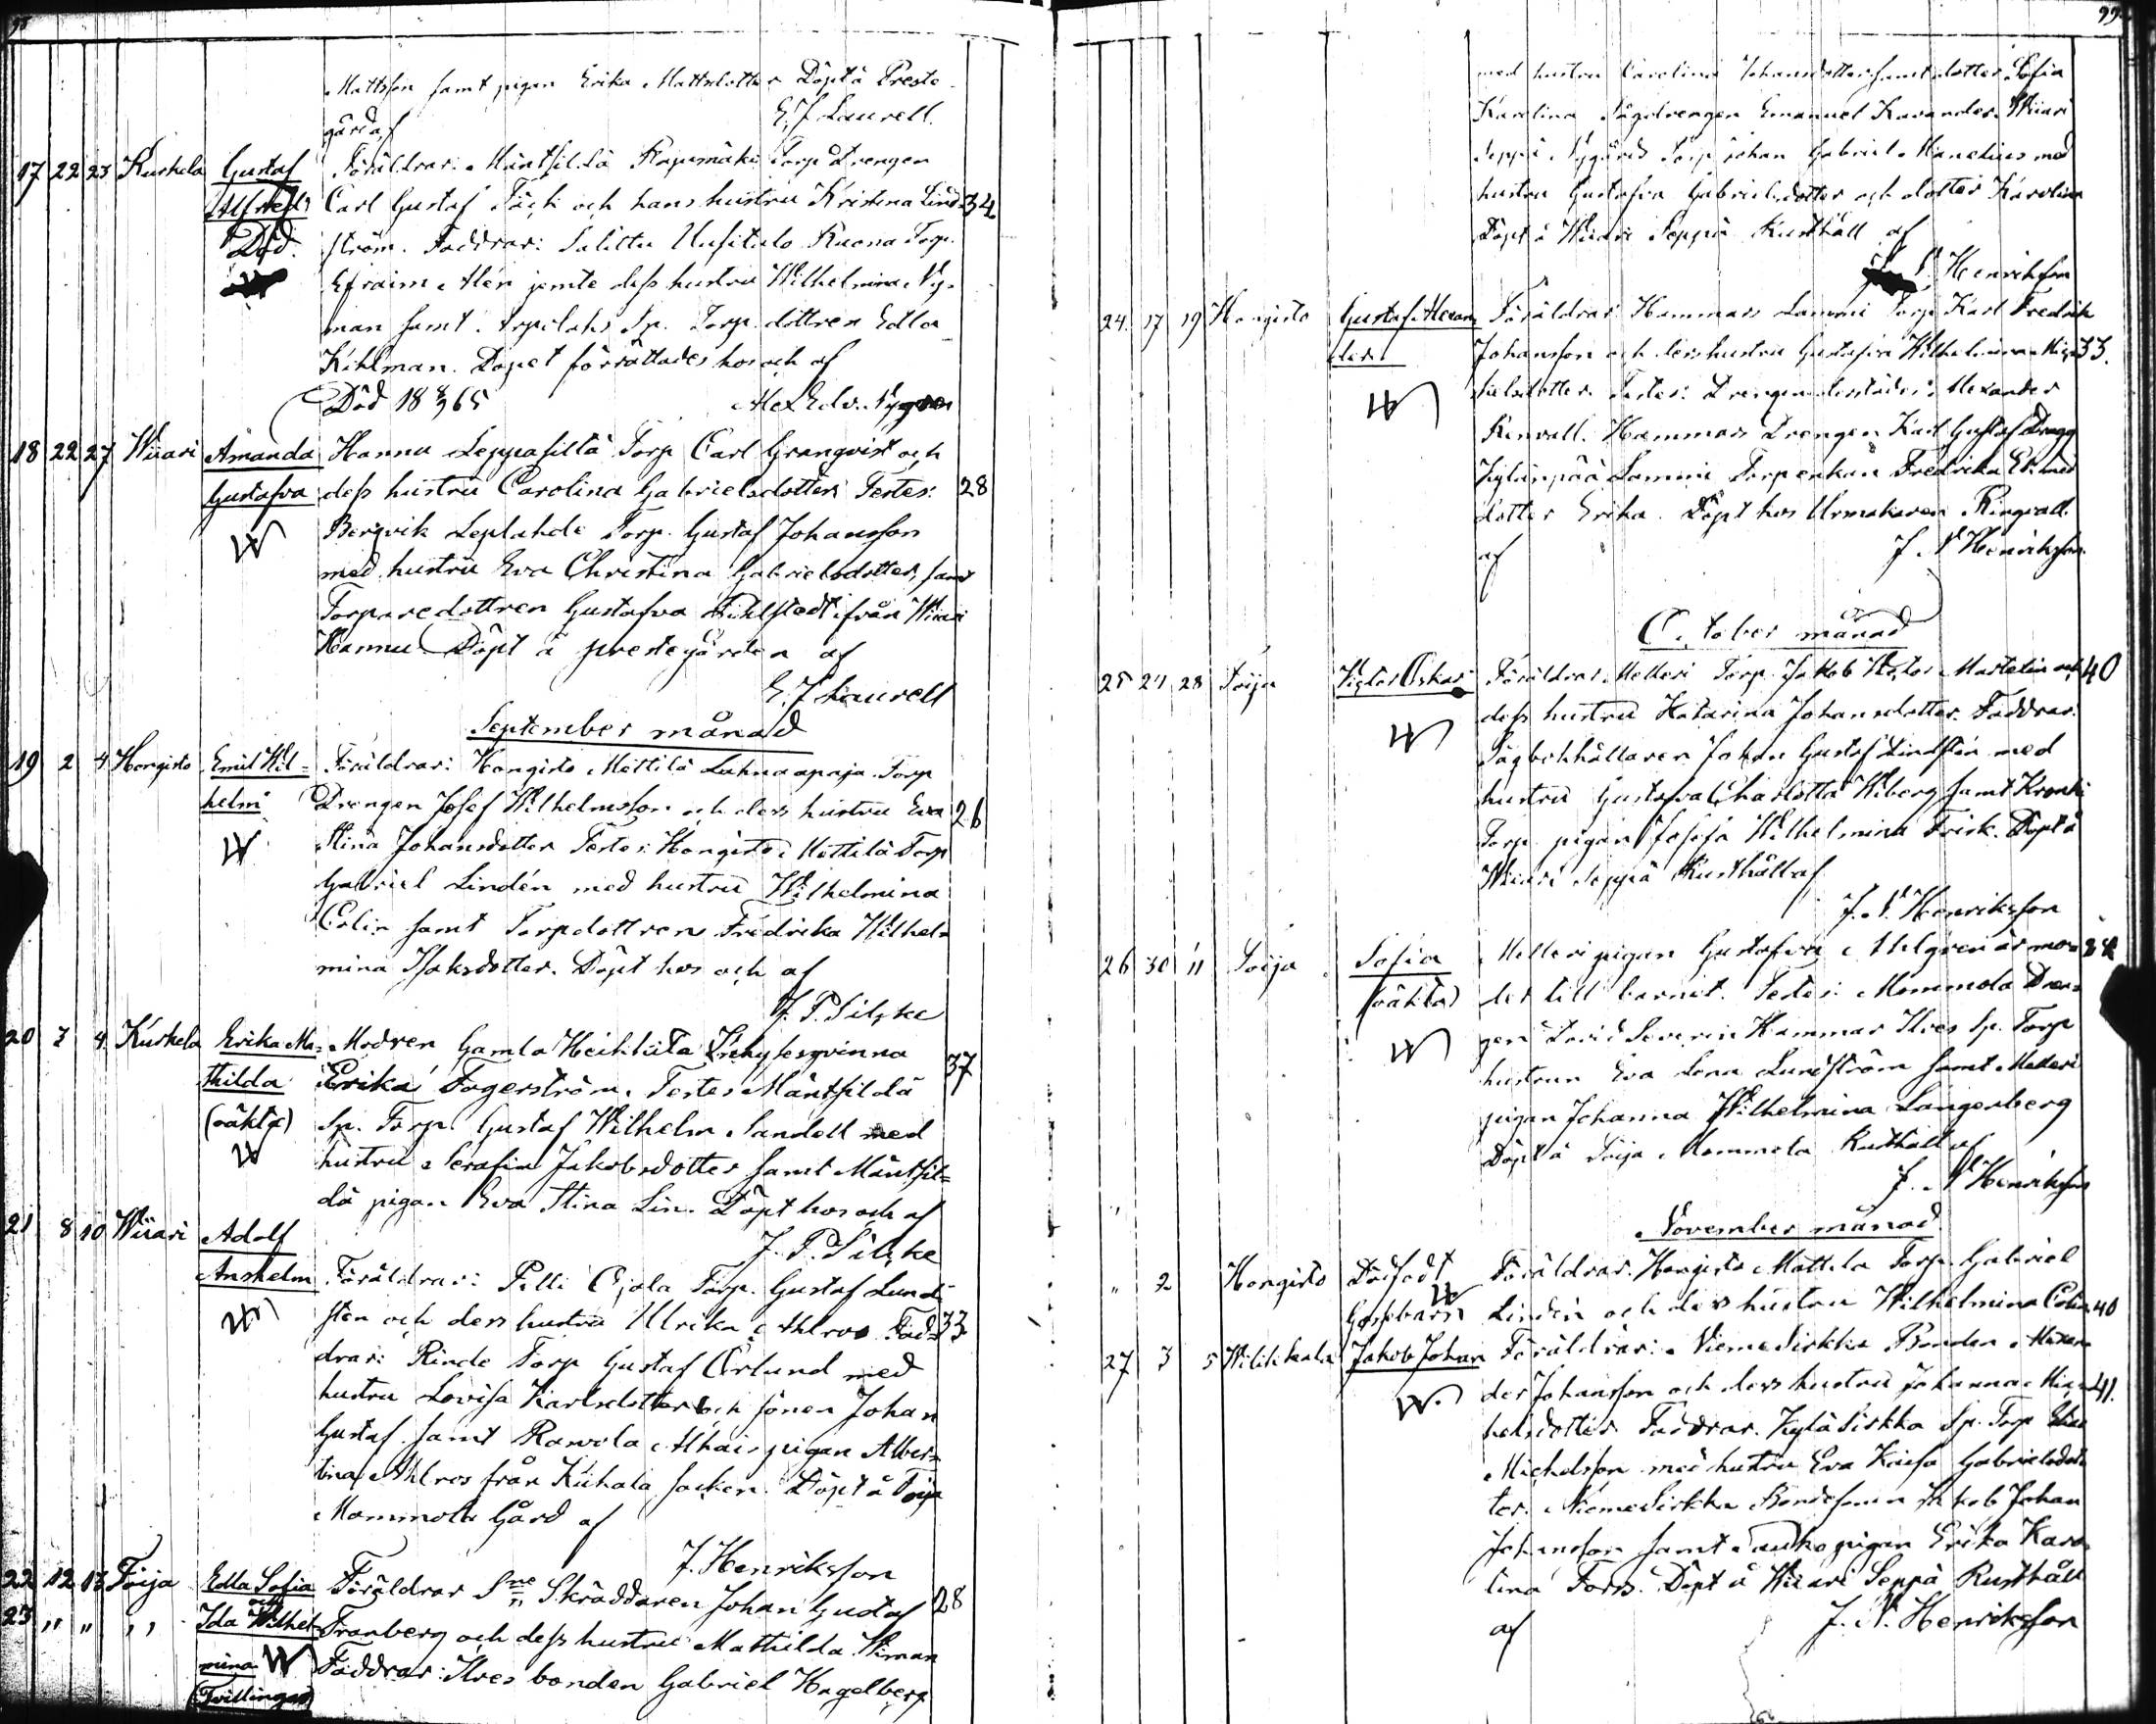 Mattsson samt pigan Erika Mattsdotter Döpt å Preste-
gård af E. J. Laurell.
17 22 23 Kurkela Gustaf Föräldrar: Mäntsildä Rapumäki Torp Drengen
Alfred Carl Gustaf Täck och hans hustru Kristina Lind- 34
Död. ström. Faddrar: Salittu Uusitalo Ruona Torp.
Efraim Alén jemte dess hustru Wilhelmina Ny-
man samt Arpilahs Sp. Torp. dottren Edla
Kihlman. Dopet förrättades hos och af
Död 18 65 Alex Edv. Nygren
18 22 27 Wiiari Amanda Hannu Leppasilta Torp Carl Granqvist och
Gustafva dess hustru Carolina Gabrielsdotter. Testes: 28
Bergvik Leplahde Torp. Gustaf Johansson
med hustru Eva Christina Gabrielsdotter, samt
Torparedottren Gustafva ifrån Wiiari
Hannu. Döpt å prestegården af
E. J. Laurell
September månad
19 2 4 Hongisto Emil Wil- Föräldrar: Hongisto Mattila Lahnaapaja Torp
helm Drengen Josef Wilhelmsson och dess hustru Eva 26
Stina Johansdotter Testes: Hongisto Mattila Torp
Gabriel Lindén med hustru Wilhelmina
Colin samt Torpdottren Fredrika Wilhel-
mina Isaksdotter. Döpt hos och af
J. P. Silcke
20 3 4 Kurkela Erika Ma- Modren Gamla Heikkilä Inhysesqvinna
thilda Erika Fagerström. Testes Mäntsildä 37
(oäkta) Sp. Torp. Gustaf Wilhelm Sandell med
hustru Serafia Jakobsdotter samt Mäntsil-
dä pigan Eva Stina Lin. Döpt hos och af
J. P. Silcke
21 8 10 Wiiari Adolf
Anshelm Föräldrar: Pilli Ojala Torp. Gustaf Lund-
sten och dess hustru Ulrika Ahlros Fad- 33
drar: Rinde Torp Gustaf Örlund med
hustru Lovisa Karlsdotter och sonen Johan
Gustaf samt Rawola Alhais pigan Alber-
tina Ahlros från Kiikala socken. Döpt å Toija
Mommola Gård af
J. Henriksson
22 12 13 Toija Edla Sofia Föräldrar Sne Skräddaren Johan Gustaf 28
och
23 „ „ „ Ida Wilhel- Tranberg och dess hustru Mathilda Wiman
mina Faddrar: Ilves bonden Gabriel Hagelberg
(Tvillingar)
99
med hustru Carolina Johansdotter samt dotter Sofia
Karolina Sågdrengen Emanuel Kavander. Wiiari
Seppä Nygårds Torp Johan Gabriel Manelius med
hustru Gustafva Gabrielsdotter och dotter Karolina
Döpt å Wiiari Seppä Rusthåll af
N. Henriksson
24. 17 19 Hongisto Gustaf Alexan- Föräldrar Hammars Lammi Torp Karl Fredrik
der Johansson och dess hustru Gustafva Wilhelmina Mi- 33.
kelsdotter. Testes: Drengen Alexander
Renvall. Hammars Drengen Karl Gustaf
Kylänpää Lammi Torpenkan Fredrika
dotter Erika. Döpt hos Urmakaren Ringvall.
af J. N. Henriksson
October månad
25 27 28 Toija Victor Oskar Föräldrar Melleri Torp. Jakob Victor Martelin och 40
dess hustru Katarina Johansdotter. Faddrar.
Sågbokhållaren Johan Gustaf Lindsten med
hustru Gustafva Charlotta Wiberg samt
Torp. pigan Josefa Wilhelmina Frisk. Döpt å
Wiiari Seppä Rusthåll af
J. N. Henriksson
26 30 11 Toija Sofia Melleri pigan Gustafva Ahlgren är mo-
(oäkta) der till barnet. Testes: Mommola Dren-
gen David Severin Hammar Ilves Sp. Torp
hustrun Eva Lena Lundström samt Melleri
pigan Johanna Wilhelmina Langenberg
Döpt å Toija Mommola Rusthåll af
J. N. Henriksson
November månad
„ 2 Hongisto Dödfödt Föräldrar. Hongisto Mattila Torp. Gabriel
Gossebarn Lindén och dess hustru Wilhelmina Colin 40
27 3 5 Jakob Johan Föräldrar: Niemi Sirkka Bonden Alexan-
der Johansson och dess hustru Johanna Mi- 41.
kelsdotter. Faddrar. Kylä Sirkka Sp. Torp
Michelsson med hustru Eva Kaisa Gabrielsdot-
ter. Niemi Sirkka Bondesonen Jakob Johan
Johansson samt pigan Erika Karo-
lina Forss. Döpt å Wiiari Seppä Rusthåll
af J. N. Henriksson